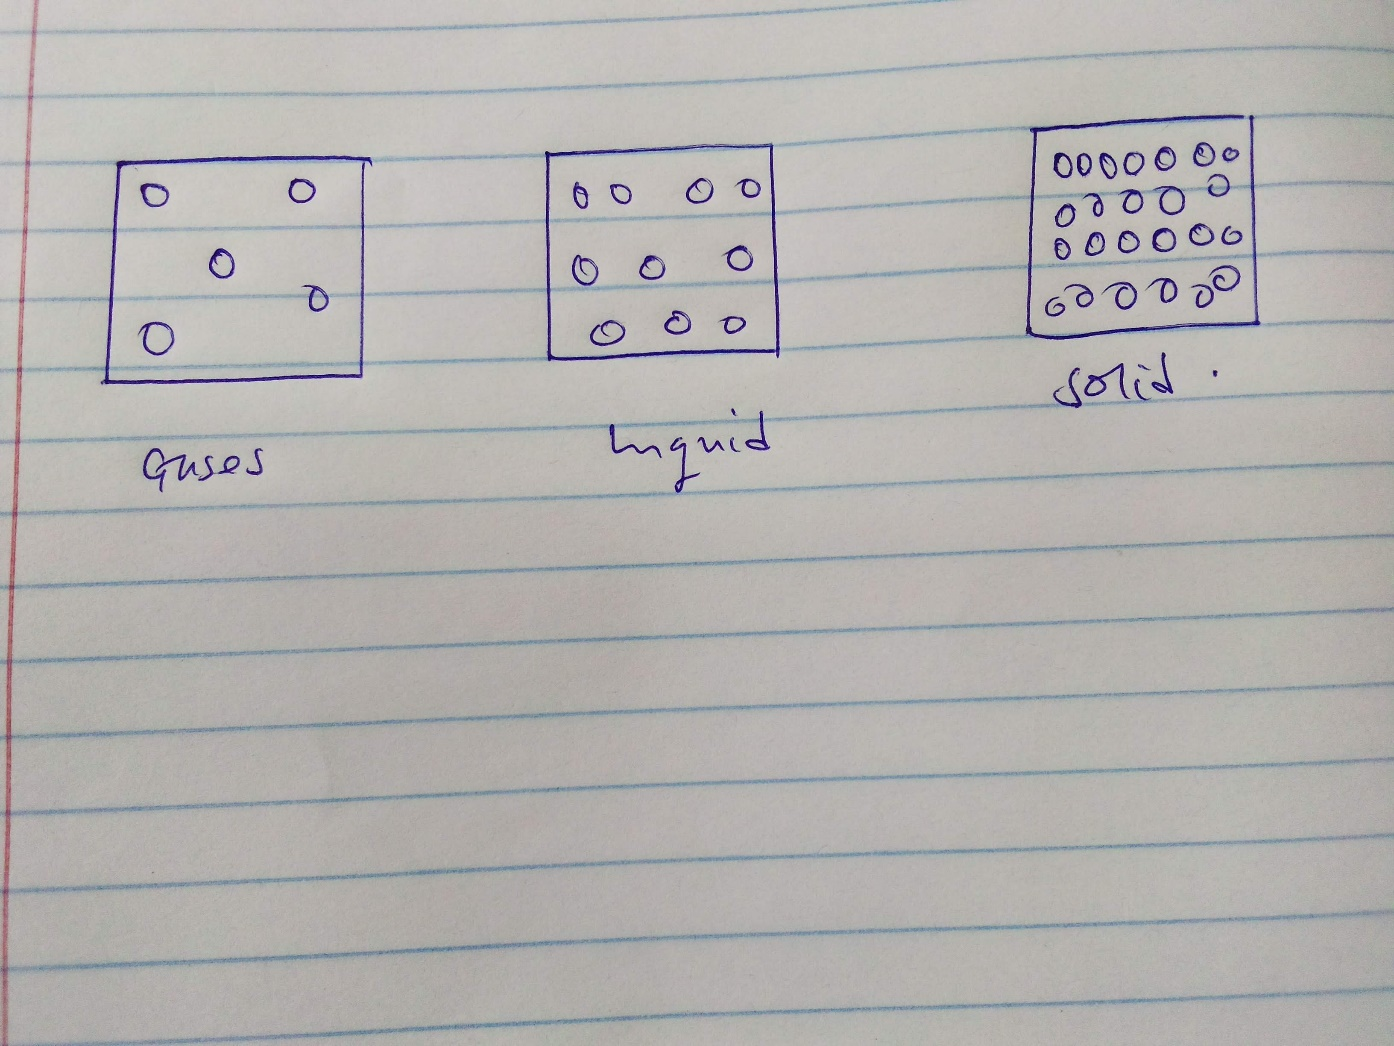 Gases
Liquid
Solid.